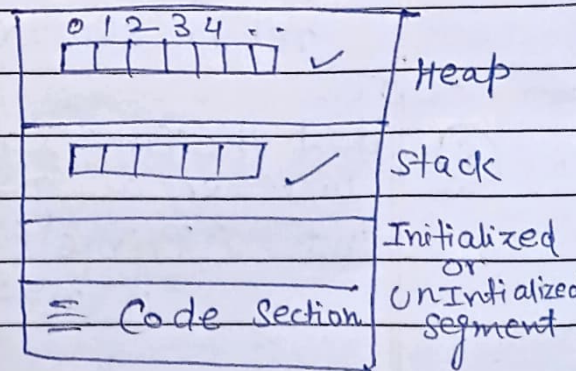 0 1 2 3 4 .
Heap
Stack
Initialized
or
UnIntialized
segment
Code Section